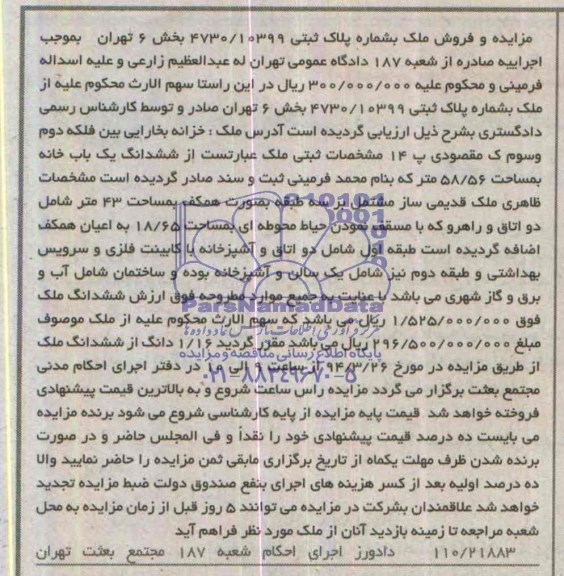 مزایده و فروش ملک بشماره پلاک ثبتی ۴۷۳۰/۱۰۳۹۹ بخش ۶ تهران بموجب
اجراییه صادره از شعبه ۱۸۷ دادگاه عمومی تهران له عبدالعظیم زارعی و علیه اسداله
فرمینی و محکوم علیه ۳۰۰/۰۰۰/۰۰۰ ریال در این راستا سهم الارث محکوم علیه از
ملک بشماره پلاک ثبتی ۴۷۳۰/۱۰۳۹۹ بخش ۶ تهران صادر و توسط کارشناس رسمی
دادگستری بشرح ذیل ارزیابی گردیده است آدرس ملک : خزانه بخارایی بین فلکه دوم
وسوم ک مقصودی پ ۱۴ مشخصات ثبتی ملک عبارتست از ششدانگ یک باب خانه
بمساحت ۵۸/۵۶ متر که بنام محمد فرمینی ثبت و سند صادر گردیده است مشخصات
ظاهری ملک قدیمی ساز مشتمل بر سه طبقه بصورت همکف بمساحت ۴۳ متر شامل
دو اتاق و راهرو که با مسقف نمودن حیاط محوطه ای بمساحت ۱۸/۶۵ به اعیان همکف
اضافه گردیده است طبقه اول شامل دو اتاق و آشپزخانه با کابینت فلزی و سرویس
بهداشتی و طبقه دوم نیز شامل یک سالن و آشپزخانه بوده و ساختمان شامل آب و
برق و گاز شهری می باشد با عنایت به جمیع موارد مطروحه فوق ارزش ششدانگ ملک
ParsNamadData
فوق ۱/۵۲۵/۰۰۰/۰۰۰ ریال می باشد که سهم الارث محکوم علیه از ملک موصوف
مبلغ ۲۹۶/۵۰۰/۰۰۰/۰۰۰ ریال می باشد مقرر گردید ۱/۱۶ دانگ از ششدانگ ملک
پایگاه اطلاع رسانی مناقصه و مزایده
از طریق مزایده در مورخ ۹۴/۳/۲۶ از ساعت ۹ الی ۱۰ در دفتر اجرای احکام مدنی
۰۲۱-۸۸۳۴۹۶۷۰-۵
مجتمع بعثت برگزار می گردد مزایده راس ساعت شروع و به بالاترین قیمت پیشنهادی
فروخته خواهد شد قیمت پایه مزایده از پایه کارشناسی شروع می شود برنده مزایده
می بایست ده درصد قیمت پیشنهادی خود را نقداً و فی المجلس حاضر و در صورت
برنده شدن ظرف مهلت یکماه از تاریخ برگزاری مابقی ثمن مزایده را حاضر نمایید والا
ده درصد اولیه بعد از کسر هزینه های اجرای بنفع صندوق دولت ضبط مزایده تجدید
خواهد شد علاقمندان بشرکت در مزایده می توانند ۵ روز قبل از زمان مزایده به محل
شعبه مراجعه تا زمینه بازدید آنان از ملک مورد نظر فراهم آید
۱۱۰/۲۱۸۸۳ دادورز اجرای احکام شعبه ۱۸۷ مجتمع بعثت تهران